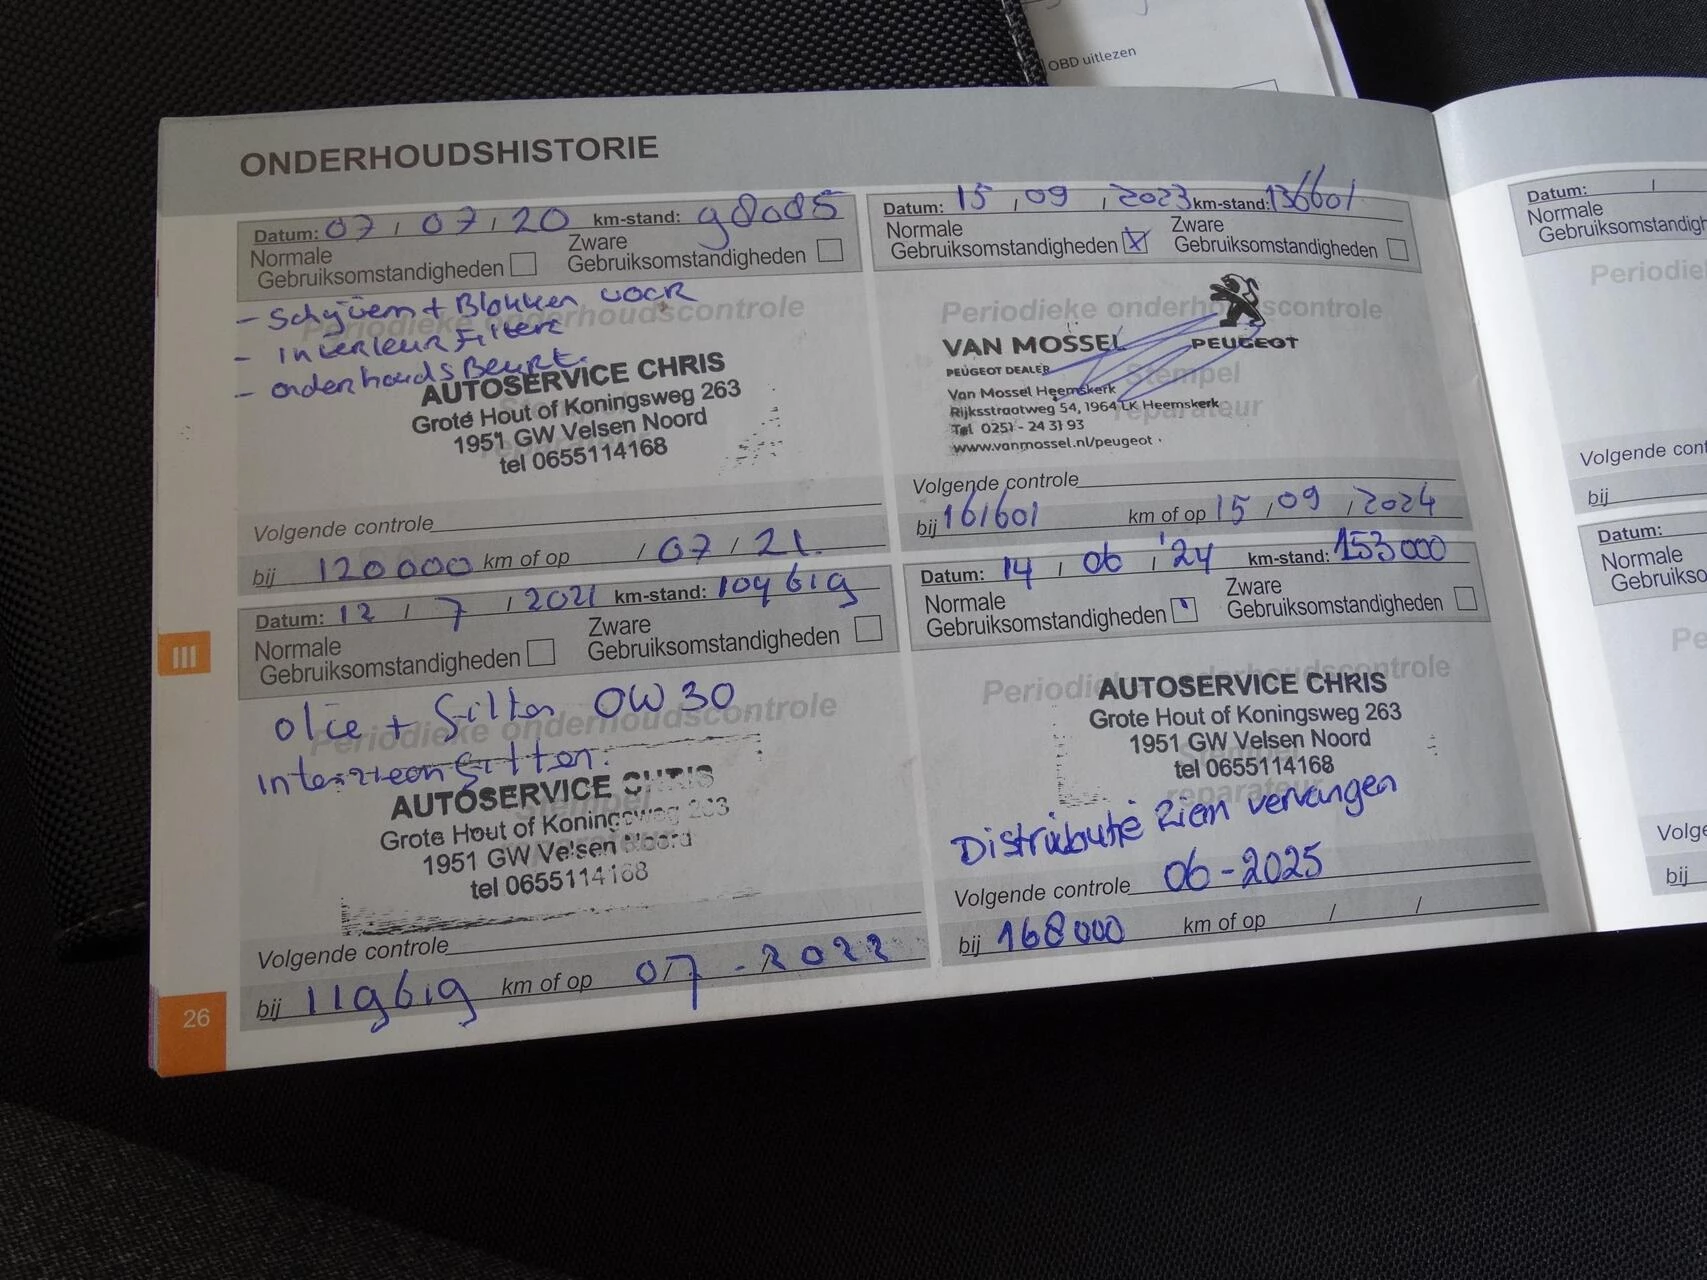 OBD uitlezen
ONDERHOUDSHISTORIE
Datum: 07 / 07 / 20 km-stand: 98085
Normale
Gebruiksomstandigheden
Zware
Gebruiksomstandigheden
Periodieke onderhoudscontrole
- Schijven + Blokken voor
- Interieur Filter
- onderhoudsBeurt.
AUTOSERVICE CHRIS
Grote Hout of Koningsweg 263
1951 GW Velsen Noord
tel 0655114168
Volgende controle
bij 120000 km of op / 07 / 21.
Datum: 12 / 7 / 2021 km-stand: 109619
Normale
Gebruiksomstandigheden
Zware
Gebruiksomstandigheden
Periodieke onderhoudscontrole
olie + filter 0W30
Stempel
AUTOSERVICE CHRIS
Grote Hout of Koningsweg 263
1951 GW Velsen Noord
tel 0655114168
Volgende controle
bij 119619 km of op 07 - 2022
III
26
Datum: 15 / 09 / 2023 km-stand: 136601
Normale
Gebruiksomstandigheden X
Zware
Gebruiksomstandigheden
Periodieke onderhoudscontrole
VAN MOSSEL PEUGEOT
PEUGEOT DEALER
Stempel
reparateur
Van Mossel Heemskerk
Rijksstraatweg 54, 1964 LK Heemskerk
Tel 0251 - 24 31 93
www.vanmossel.nl/peugeot
Volgende controle
bij 161601 km of op 15 / 09 / 2024
Datum: 14 / 06 / '24 km-stand: 153000
Normale
Gebruiksomstandigheden
Zware
Gebruiksomstandigheden
Periodieke onderhoudscontrole
AUTOSERVICE CHRIS
Grote Hout of Koningsweg 263
1951 GW Velsen Noord
tel 0655114168
Stempel
reparateur
Distributie Riem vervangen
Volgende controle 06-2025
bij 168000 km of op / /
Datum: /
Normale
Gebruiksomstandigh
Periodie
Volgende cont
bij
Datum:
Normale
Gebruikso
Pe
Volge
bij